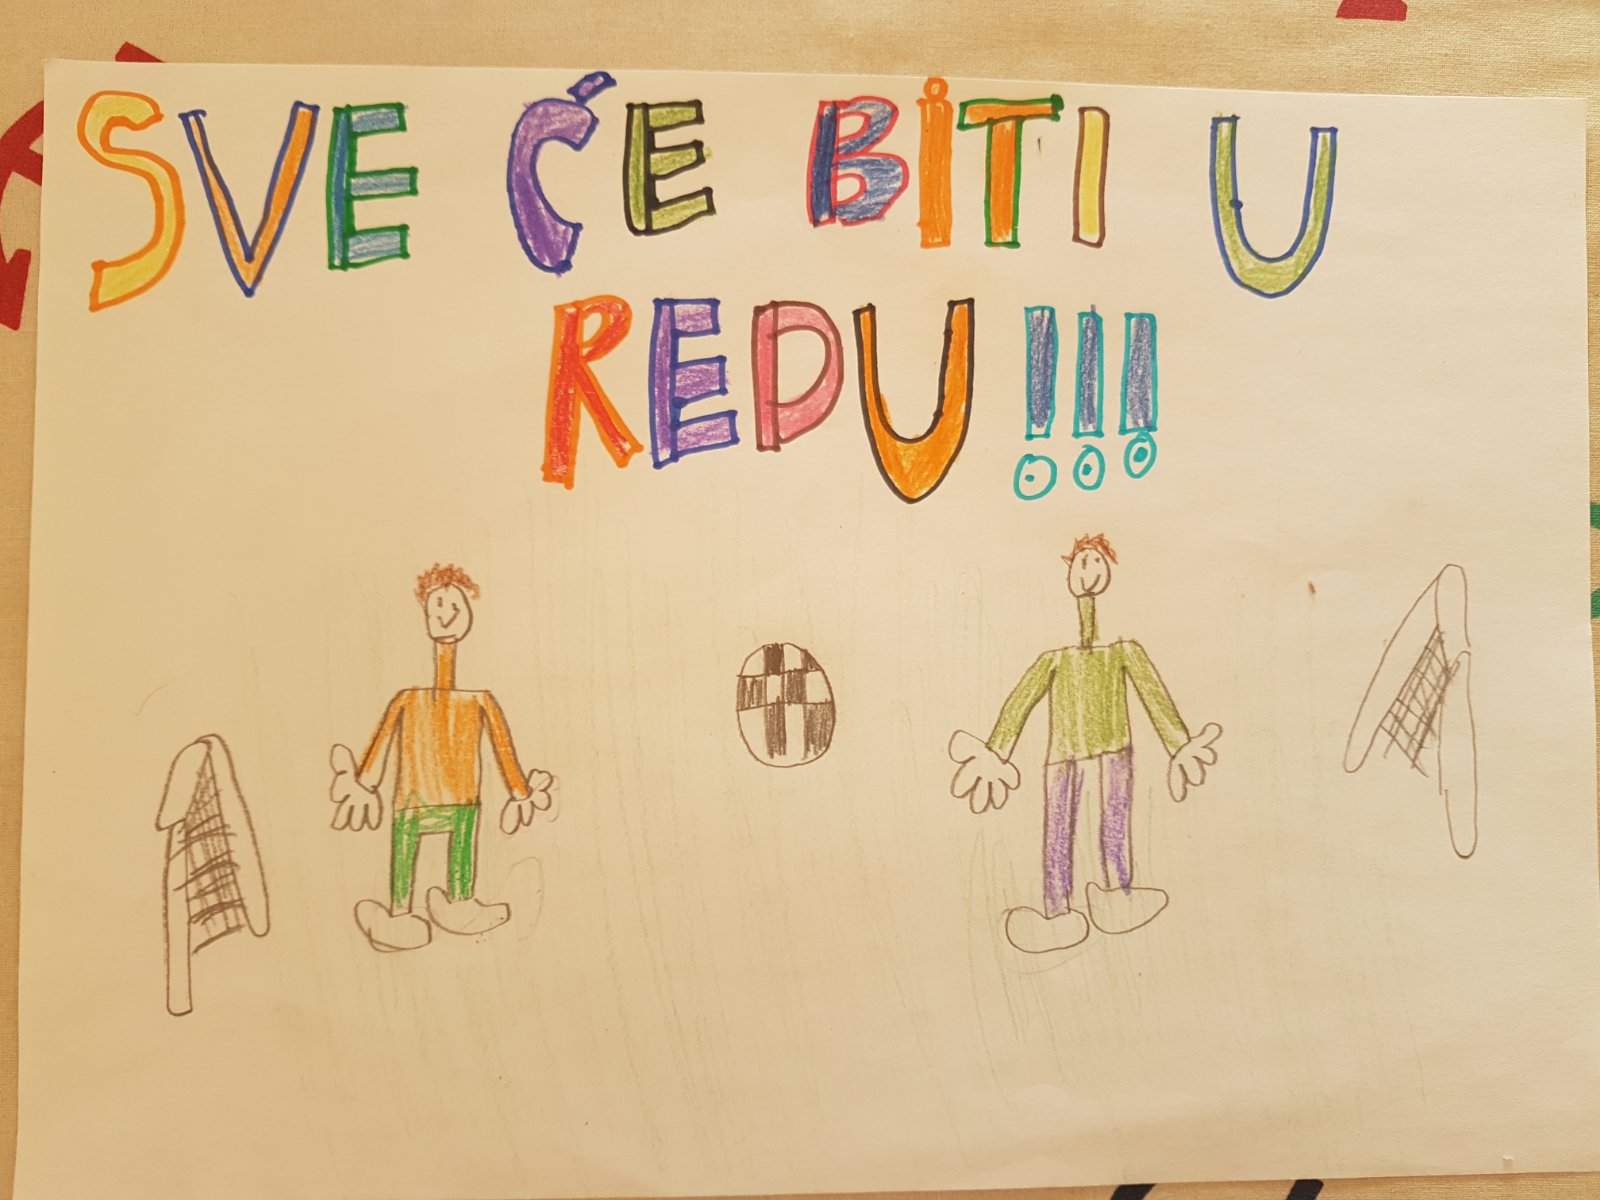 SVE ĆE BITI U
REDU!!!